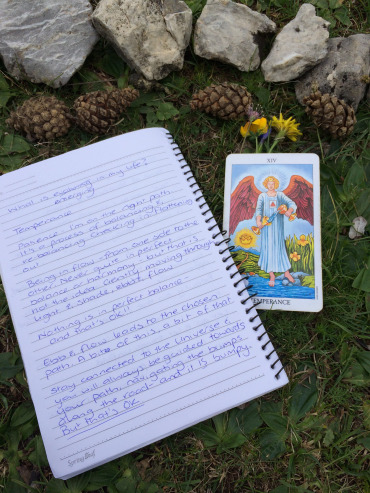 What is evolving in my life?
energy
Temperance.
Patience. I'm on the right path.
it's a process of balancing &
re balancing, checking in, flattening
out
Being in flow - from one side to the
other. Never quite in perfect
balance or harmony, but that is
not the idea, clearly moving through
light & shade, ebb & flow.
Nothing is in perfect balance
and that's OK!!
Ebb & flow leads to the chosen
path. A bit of this, a bit of that
Stay connected to the Universe &
you will always be guided towards
your path, navigating the bumps
along the road - and it is bumpy.
But that's OK.
XIV
TEMPERANCE